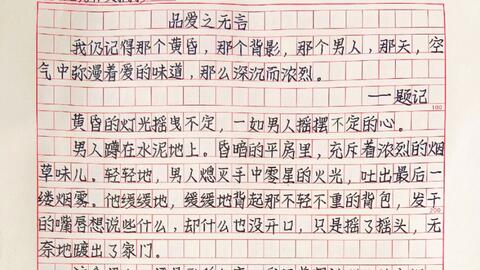 品爱之无言
我仍记得那个黄昏，那个背影，那个男人，那天，空
气中弥漫着爱的味道，那么深沉而浓烈。
——题记
100
黄昏的灯光摇曳不定，一如男人摇摆不定的心。
男人蹲在水泥地上。昏暗的平房里，充斥着浓烈的烟
草味儿。轻轻地，男人熄灭手中零星的火光，吐出最后一
缕烟雾。他缓缓地，缓缓地背起那不轻不重的背包，发干
200
的嘴唇想说些什么，却什么也没开口，只是摇了摇头，无
奈地踱出了家门。